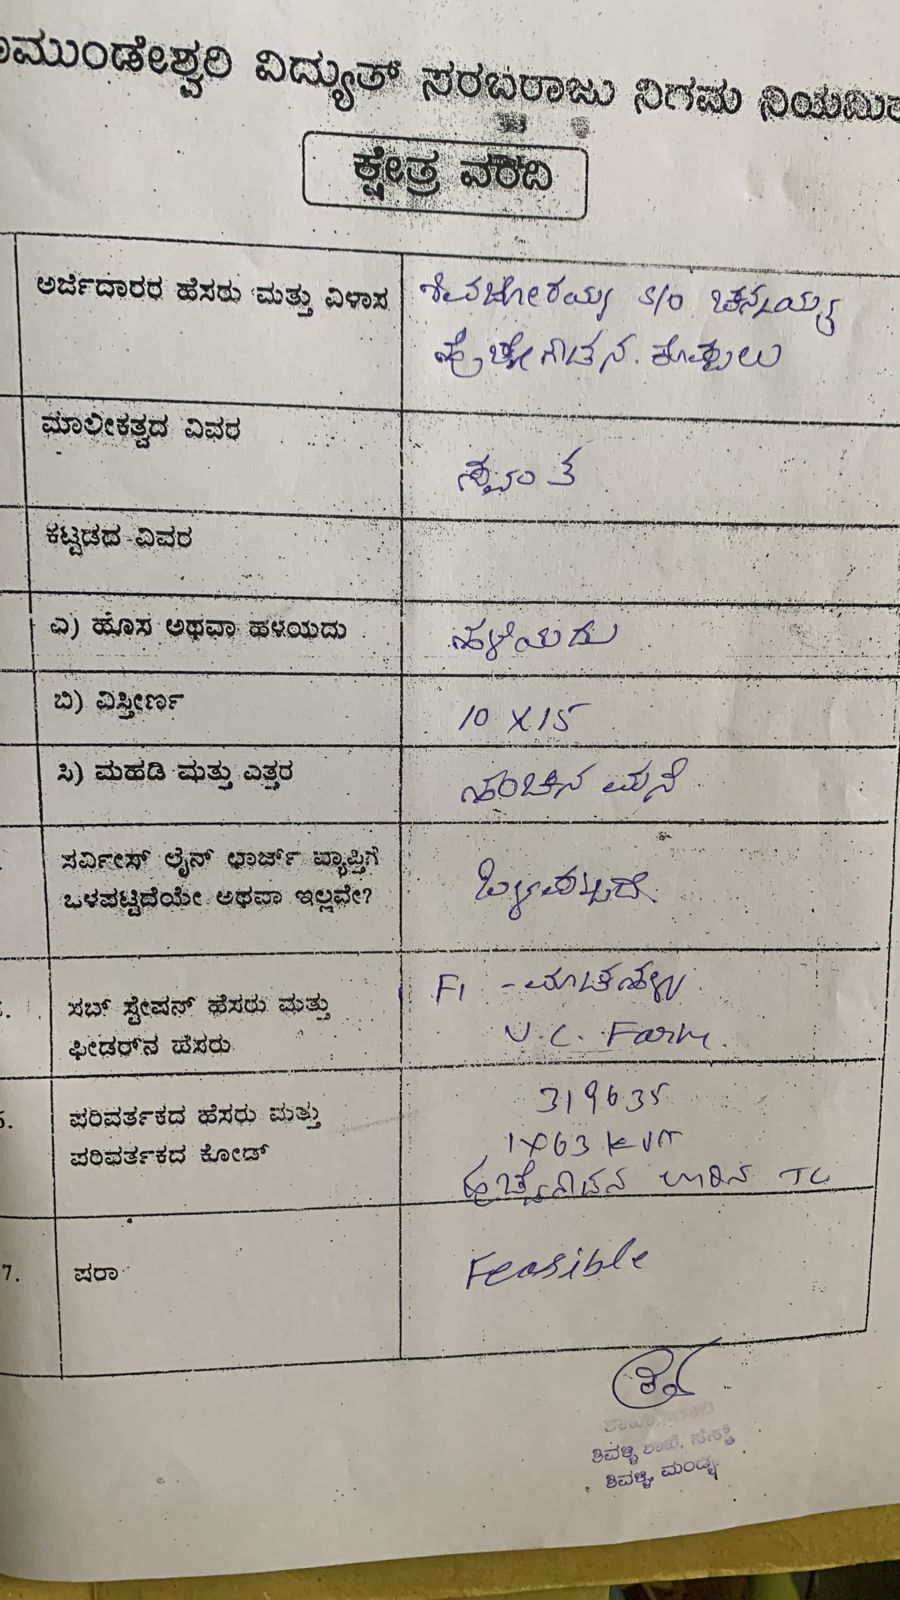 ಚಾಮುಂಡೇಶ್ವರಿ ವಿದ್ಯುತ್ ಸರಬ್ಬರಾಜು ನಿಗಮ ನಿಯಮಿತ
ಕ್ಷೇತ್ರ ವರದಿ
ಅರ್ಜಿದಾರರ ಹೆಸರು ಮತ್ತು ವಿಳಾಸ
S/O
ಮಾಲೀಕತ್ವದ ವಿವರ
ಸ್ವಂತ
ಕಟ್ಟಡದ ವಿವರ
ಎ) ಹೊಸ ಅಥವಾ ಹಳೆಯದು
ಹಳೆಯದು
ಬಿ) ವಿಸ್ತೀರ್ಣ
10 X 15
ಸಿ) ಮಹಡಿ ಮತ್ತು ಎತ್ತರ
ಹಂಚಿನ ಮನೆ
ಸರ್ವೀಸ್ ಲೈನ್ ಛಾರ್ಜ್ ವ್ಯಾಪ್ತಿಗೆ
ಒಳಪಟ್ಟಿದೆಯೇ ಅಥವಾ ಇಲ್ಲವೇ?
ಒಳಪಟ್ಟಿದೆ.
ಸಬ್ ಸ್ಟೇಷನ್ ಹೆಸರು ಮತ್ತು
ಫೀಡರ್‌ನ ಹೆಸರು
F1 -
V.C. Farm.
ಪರಿವರ್ತಕದ ಹೆಸರು ಮತ್ತು
ಪರಿವರ್ತಕದ ಕೋಡ್
319635
1X63 KVA
ಊರಿನ TC
7. ಷರಾ
Feasible
ಶಿವಳ್ಳಿ ಶಾಖೆ, ಸೆಸ್ಕ್
ಶಿವಳ್ಳಿ, ಮಂಡ್ಯ